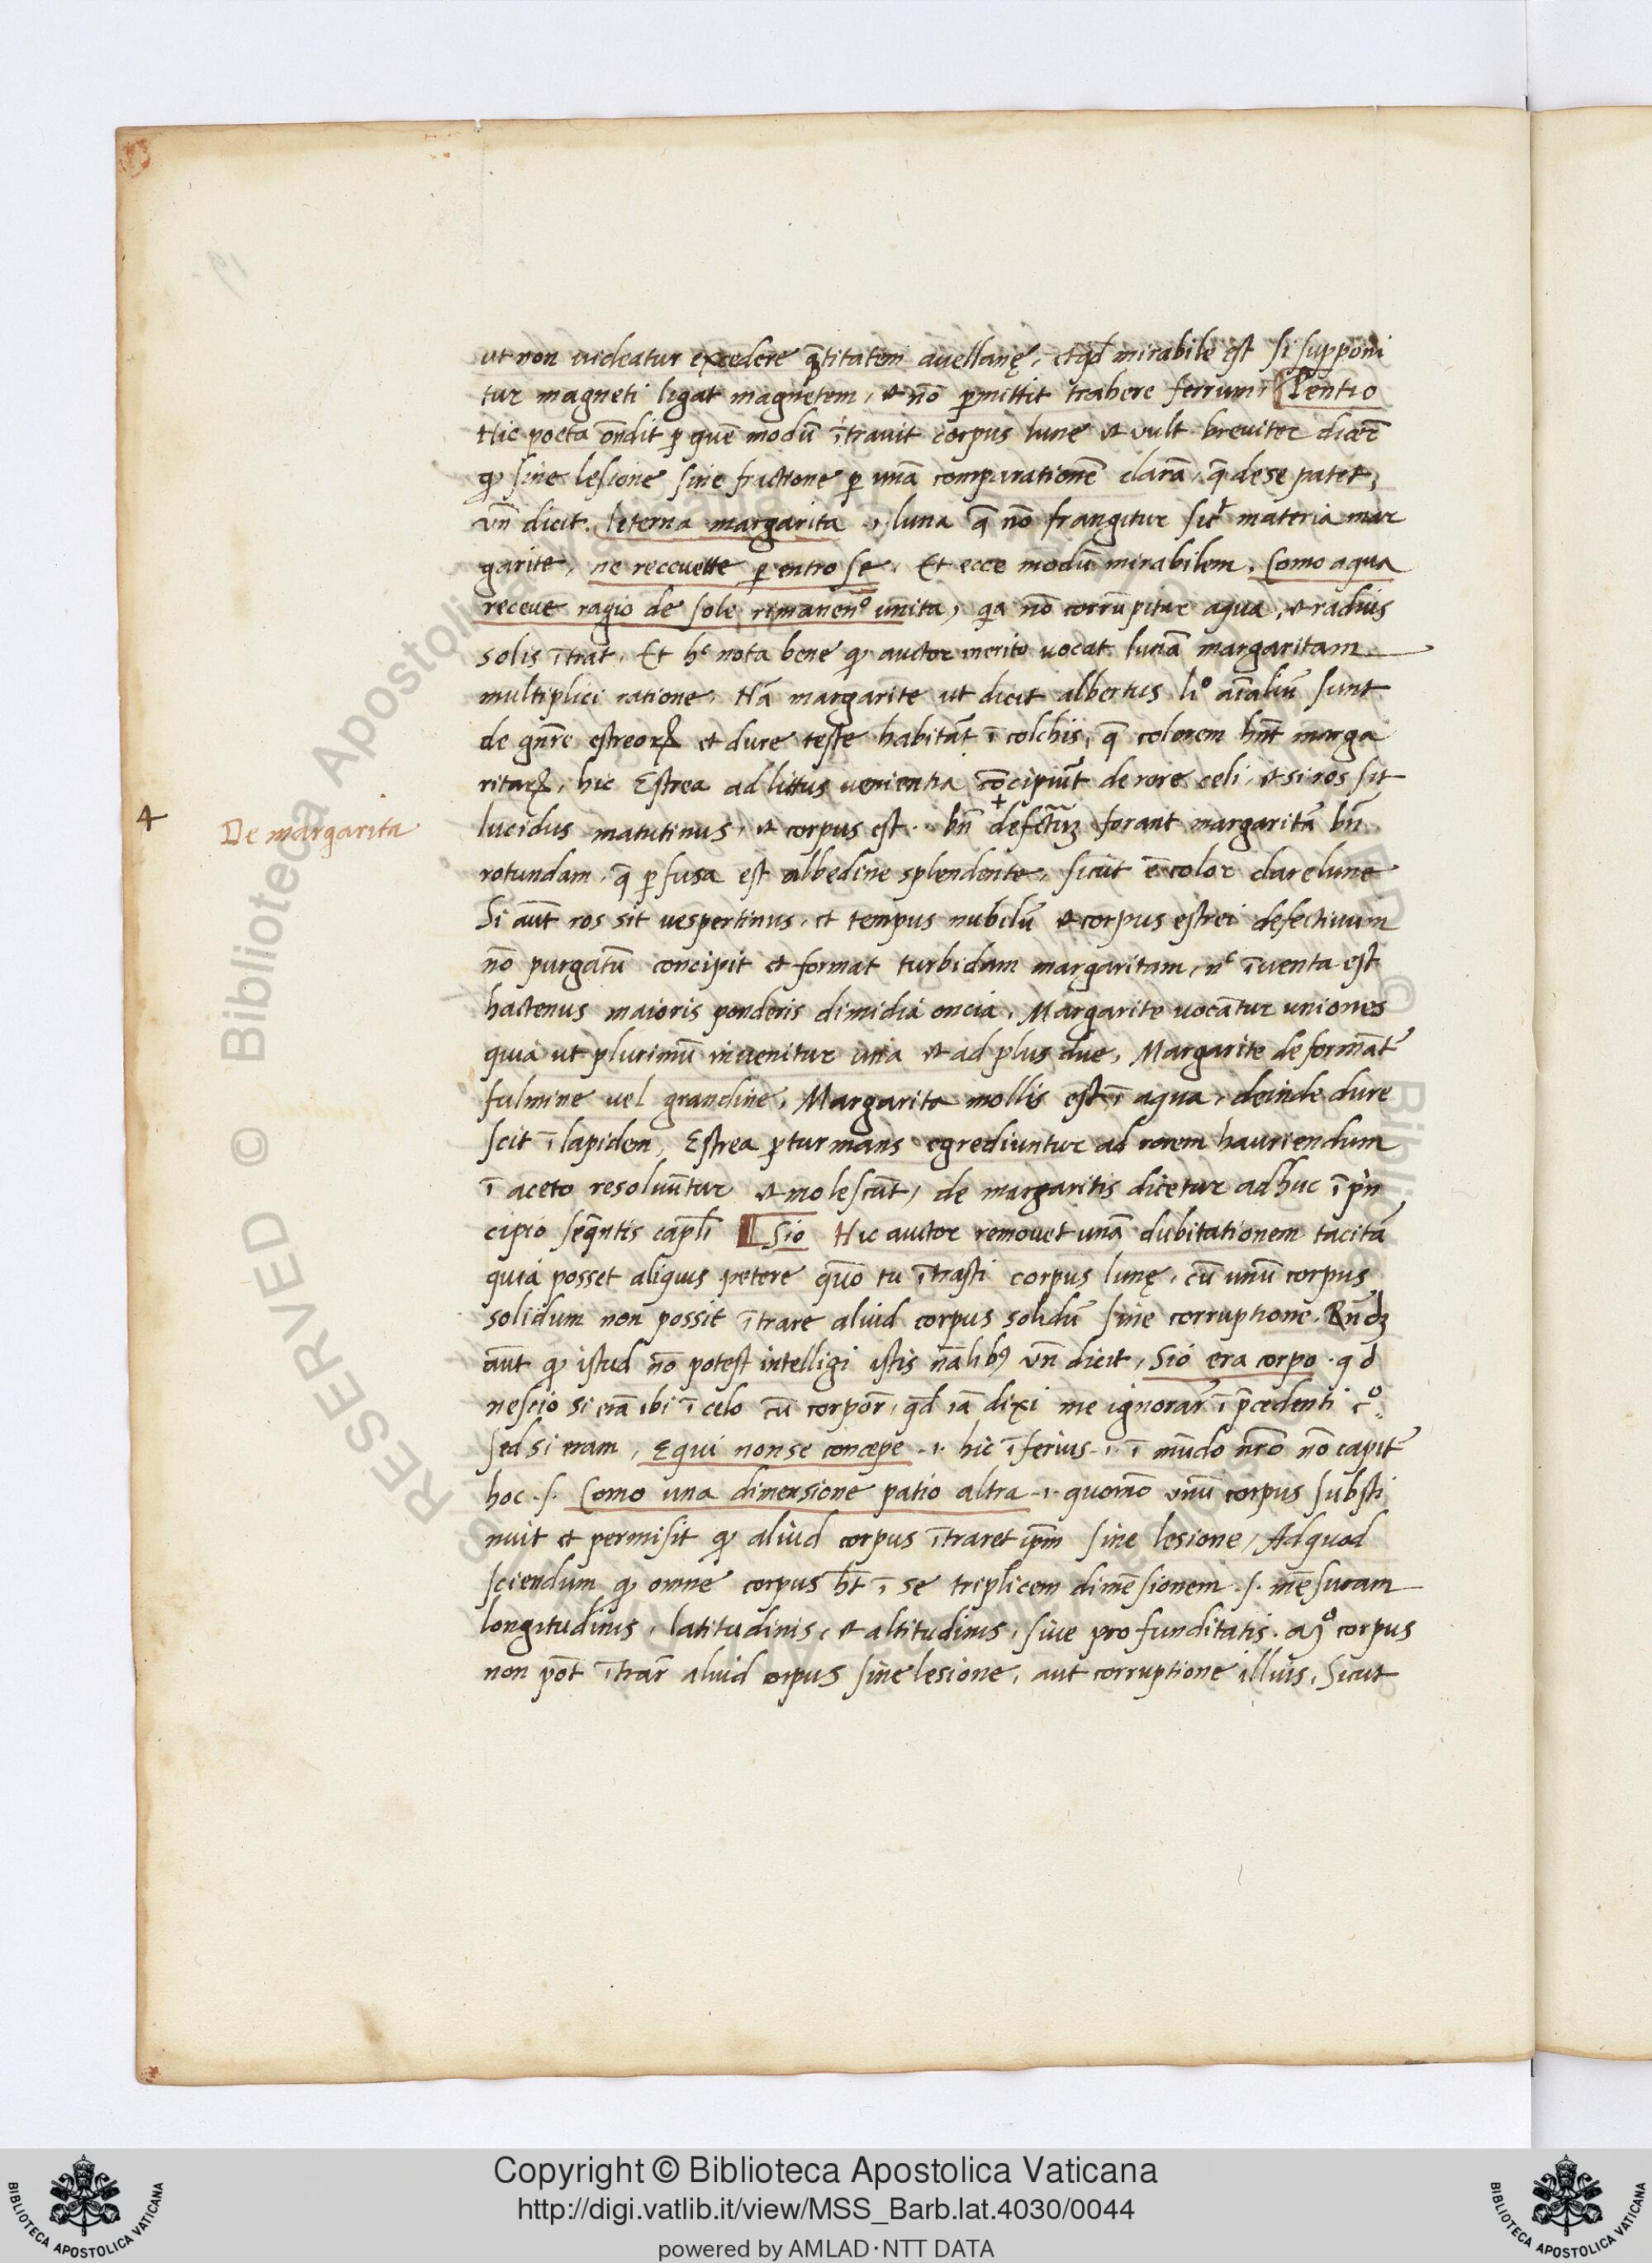 ut non uideatur excedere q̄titatem auellanę, et qd̄ mirabile est si supponi
tur magneti ligat magnetem, et nō p̱mittit trahere ferrum, Pentro
Hic poeta ōndit p̱ quē modū ītrauit corpus lune et uult breuiter dicēr
ꝙ sine lesione sine fractione p̱ unā comparationē clarā, q̄ de se patet,
vn̄ dicit. leterna margarita .i. luna q̄ nō frangitur sic̄ materia mar
garite, ne receuette p̱ entro se, Et ecce modū mirabilem, Como aqua
receue ragio de sole rimanenº unita, qa nō corrūpitur aqua, et radius
solis ītrat, Et hͨ nota bene ꝙ auctor merito uocat lunā margaritam
multiplici ratione, Nā margarite ut dicit albertus liº aīaliū sunt
de gn̄re estreoꝝ et dure teste habitāt ī colchis, q̄ colorem hn̄t marga
ritaꝝ, hic Estrea ad littus uenientia cōcipiūt de rore celi, et si ros sit
De margarita
lucidus matutinus, et corpus est .. bn̄ defctūꝫ forant margaritā bn̄
rotundam, q̄ p̱fusa est albedine splendente, sicut ē color clare lune
Si aūt ros sit uespertinus, et tempus nubilū et corpus estrei defectiuum
nō purgatū concipit et format turbidam margaritam, nͨ īuenta est
hactenus maioris ponderis dimidia oncia, Margarite uocātur uniones
quia ut plurimū inuenitur una et ad plus due, Margarite deformāt᷑
fulmine uel grandine, Margarita mollis est ī aqua, deinde dure
scit ī lapidem, Estrea p̱turmans egrediuntur ad rorem hauriendum
ī aceto resoluūtur et molescūt, de margaritis dicetur adhuc ī prīn
cipio seq̄ntis capl̄i Sio Hic auctor remouet unā dubitationem tacitā
quia posset aliquis petere quō tu ītrasti corpus lunę, cū unū corpus
solidum non possit ītrare aliud corpus solidū sine corruptione. Rn̄dꝫ
aūt ꝙ istud nō potest intelligi istis nālibꝰ vn̄ dicit, Sio era corpo .q d
nescio si erā ibi ī celo cū corpor̄, qd̄ iā dixi me ignorar̄ ī p̄cedenti cº
sed si eram, E qui non se concepe .i. hic īferius .i. ī mūdo nr̄o nō capit᷑
hoc .s. Como una dimensione patio altra .i. quomō unū corpus susti
nuit et permisit ꝙ aliud corpus ītraret ip̄m sine lesione, Ad quod
sciendum ꝙ omne corpus hēt ī se triplicem dimēsionem .s. mēsuram
longitudinis, latitudinis, et altitudinis, siue profunditatis. mº corpus
non pōt ītrar̄ aliud corpus sine lesione, aut corruptione illius, Sicut
Copyright © Biblioteca Apostolica Vaticana
http://digi.vatlib.it/view/MSS_Barb.lat.4030/0044
powered by AMLAD·NTT DATA
BIBLIOTECA APOSTOLICA VATICANA
BIBLIOTECA APOSTOLICA VATICANA